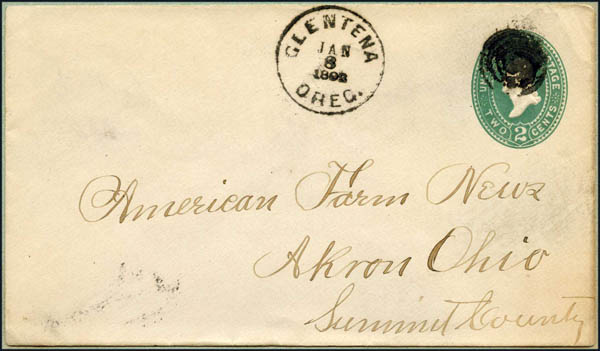 GLENTENA
JAN
8
1892
OREG.
POSTAGE
TWO 2 CENTS
American Farm News
Akron Ohio
Summit County